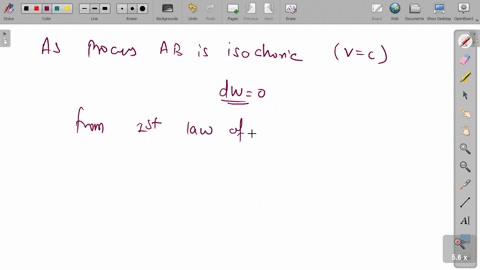 Board
Background
Undo
Redo
Pages
Previous
Next
Erase
Board
Web
Documents
Show Desktop
OpenBoard
As Process AB is isochoric (V=C)
dw=0
from 1st law of t
5.6 x